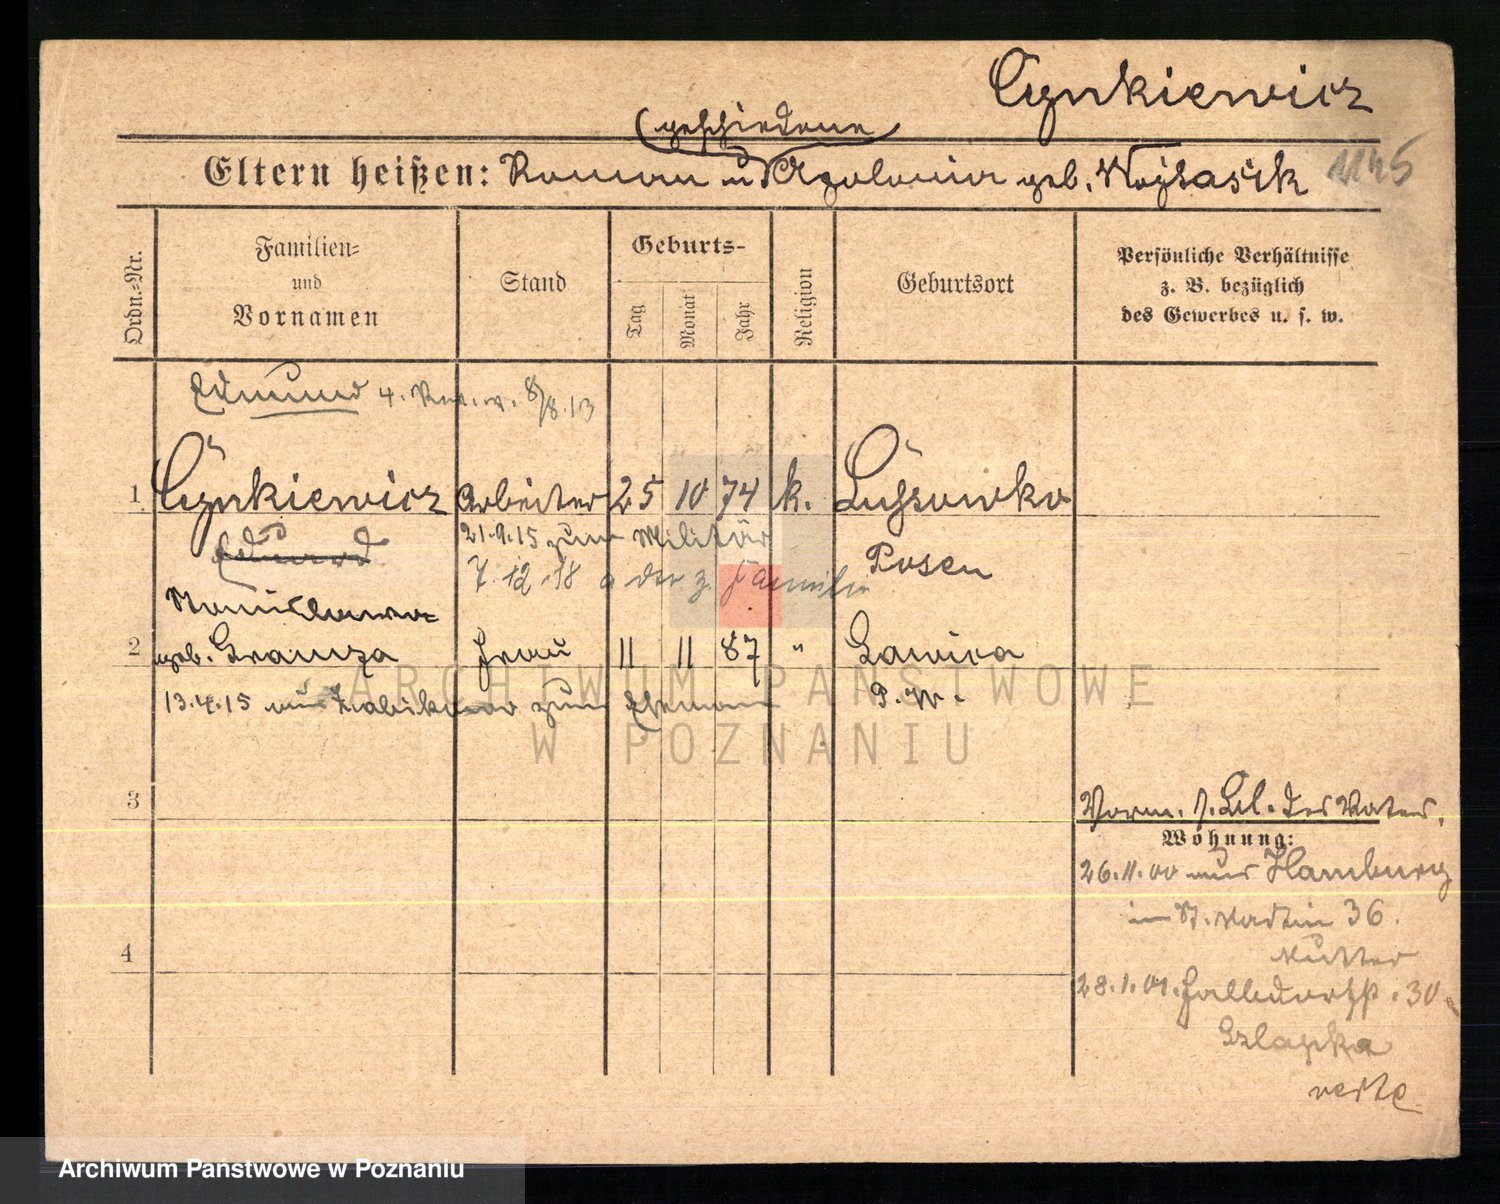 Cynkiewicz
(geschiedene)
Eltern heißen: Roman u. Apolonia geb. Wojtasik 1145
Ordn.=Nr.
Familien=
und
Vornamen
Stand
Geburts-
Tag
Monat
Jahr
Religion
Geburtsort
Persönliche Verhältnisse
z. B. bezüglich
des Gewerbes u. s. w.
Edmund 4. 8/8.13
1 Cynkiewicz Arbeiter 25 10 74 k. Lussowko
Eduard 21.9.15 zum Militär Posen
7.12.18 z. Familie
Stanislawa
2 geb. Franza Frau 11 11 87 " Lawica
13.4.15 zum Ehemann P. W.
3
Vorm. s. Bl. des Vaters.
Wohnung:
26.11.00 aus Hamburg
in St. Martin 36.
Mutter
4
28.1.01. Halldorfstr. 30
Szlapka
verte
ARCHIWUM PAŃSTWOWE
W POZNANIU
Archiwum Państwowe w Poznaniu